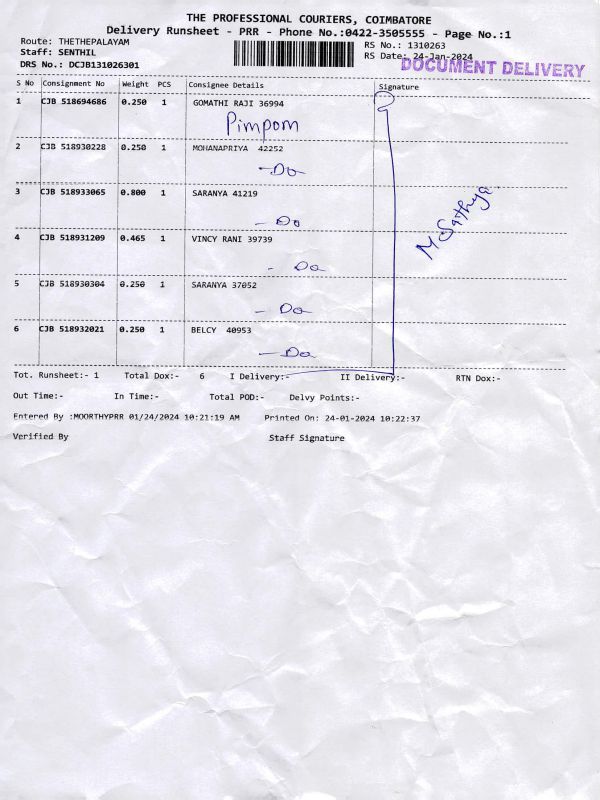 THE PROFESSIONAL COURIERS, COIMBATORE
Delivery Runsheet - PRR - Phone No.:0422-3505555 - Page No.:1
Route: THETHEPALAYAM
Staff: SENTHIL
DRS No.: DCJB131026301
RS No.: 1310263
RS Date: 24-Jan-2024
DOCUMENT DELIVERY
S No Consignment No Weight PCS Consignee Details Signature
1 CJB 518694686 0.250 1 GOMATHI RAJI 36994
Pimpom
2 CJB 518930228 0.250 1 MOHANAPRIYA 42252
- Do
3 CJB 518933065 0.800 1 SARANYA 41219
- Do
4 CJB 518931209 0.465 1 VINCY RANI 39739
- Do
5 CJB 518930304 0.250 1 SARANYA 37052
- Do
6 CJB 518932021 0.250 1 BELCY 40953
- Do
M Sathya
Tot. Runsheet:- 1 Total Dox:- 6 I Delivery:- II Delivery:- RTN Dox:-
Out Time:- In Time:- Total POD:- Delvy Points:-
Entered By :MOORTHYPRR 01/24/2024 10:21:19 AM Printed On: 24-01-2024 10:22:37
Verified By Staff Signature